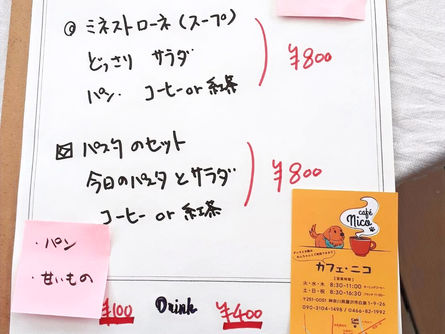 ◎ ミネストローネ (スープ)
どっさり サラダ
パン. コーヒー or 紅茶
¥800
⊠ パスタ のセット
今日のパスタ と サラダ
コーヒー or 紅茶
¥800
・パン
・甘いもの
¥100
Drink ¥400
café
Nico
カフェ・ニコ
火・水・木 8:30-11:00
土・日・祝 8:30-16:30
〒251-0051 神奈川県藤沢市白旗1-9-26
090-3104-1498 / 0466-82-1992